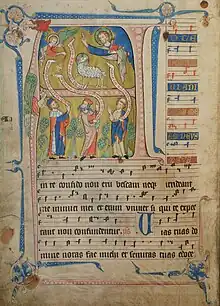 in te confido non eru bescam neq irrideant
me inimici mei et enim universi qui te expec
tant non confundentur Vias tuas do
mine notas fac michi et semitas tuas edoce